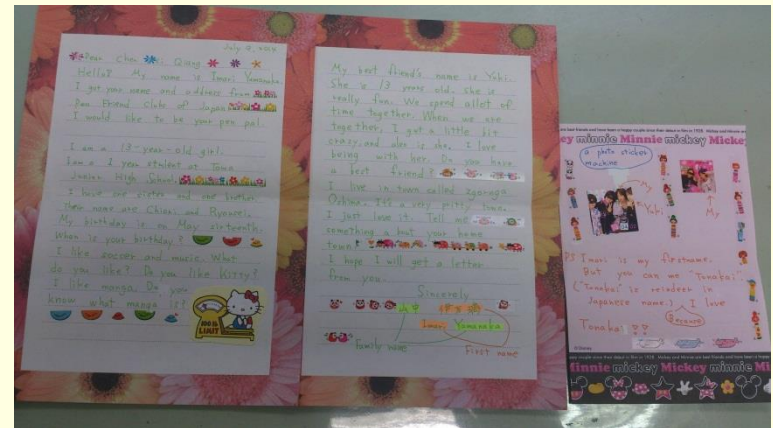 July 9, 2015
Dear Chen Yi Qiang
Hello! My name is Imari Yamanaka.
I got your name and address from
Pen Friend Club of Japan
I would like to be your pen pal.
I am a 13-year-old girl.
I am a 1 year student at Towa
Junior High School.
I have one sister and one brother.
Their name are Chinri and
My birthday is on May sixteenth.
When is your birthday?
I like soccer and music. What
do you like? Do you like Kitty?
I like manga. Do you
know what manga is?
NO
LIMIT
My best friend's name is Yuki.
She is 13 years old. She is
really fun. We spend allot of
time together. When we are
together, I get a little bit
crazy, and also is she. I love
being with her. Do you have
a best friend?
I live in town called
Oshima. It's a very pretty town.
I just love it. Tell me
something a bout your home
town.
I hope I will get a letter
from you.
Sincerely
山中
Imari Yamanaka
Family name
First name
Minnie mickey Minnie mickey
a photo sticker
machine
My
Yuki
My
P.S Imari is my firstname.
But you can me "Tonakai".
("Tonakai" is reindeer in
Japanese name.) I love
Because
Tonakai
©Disney
minnie mickey Mickey minnie